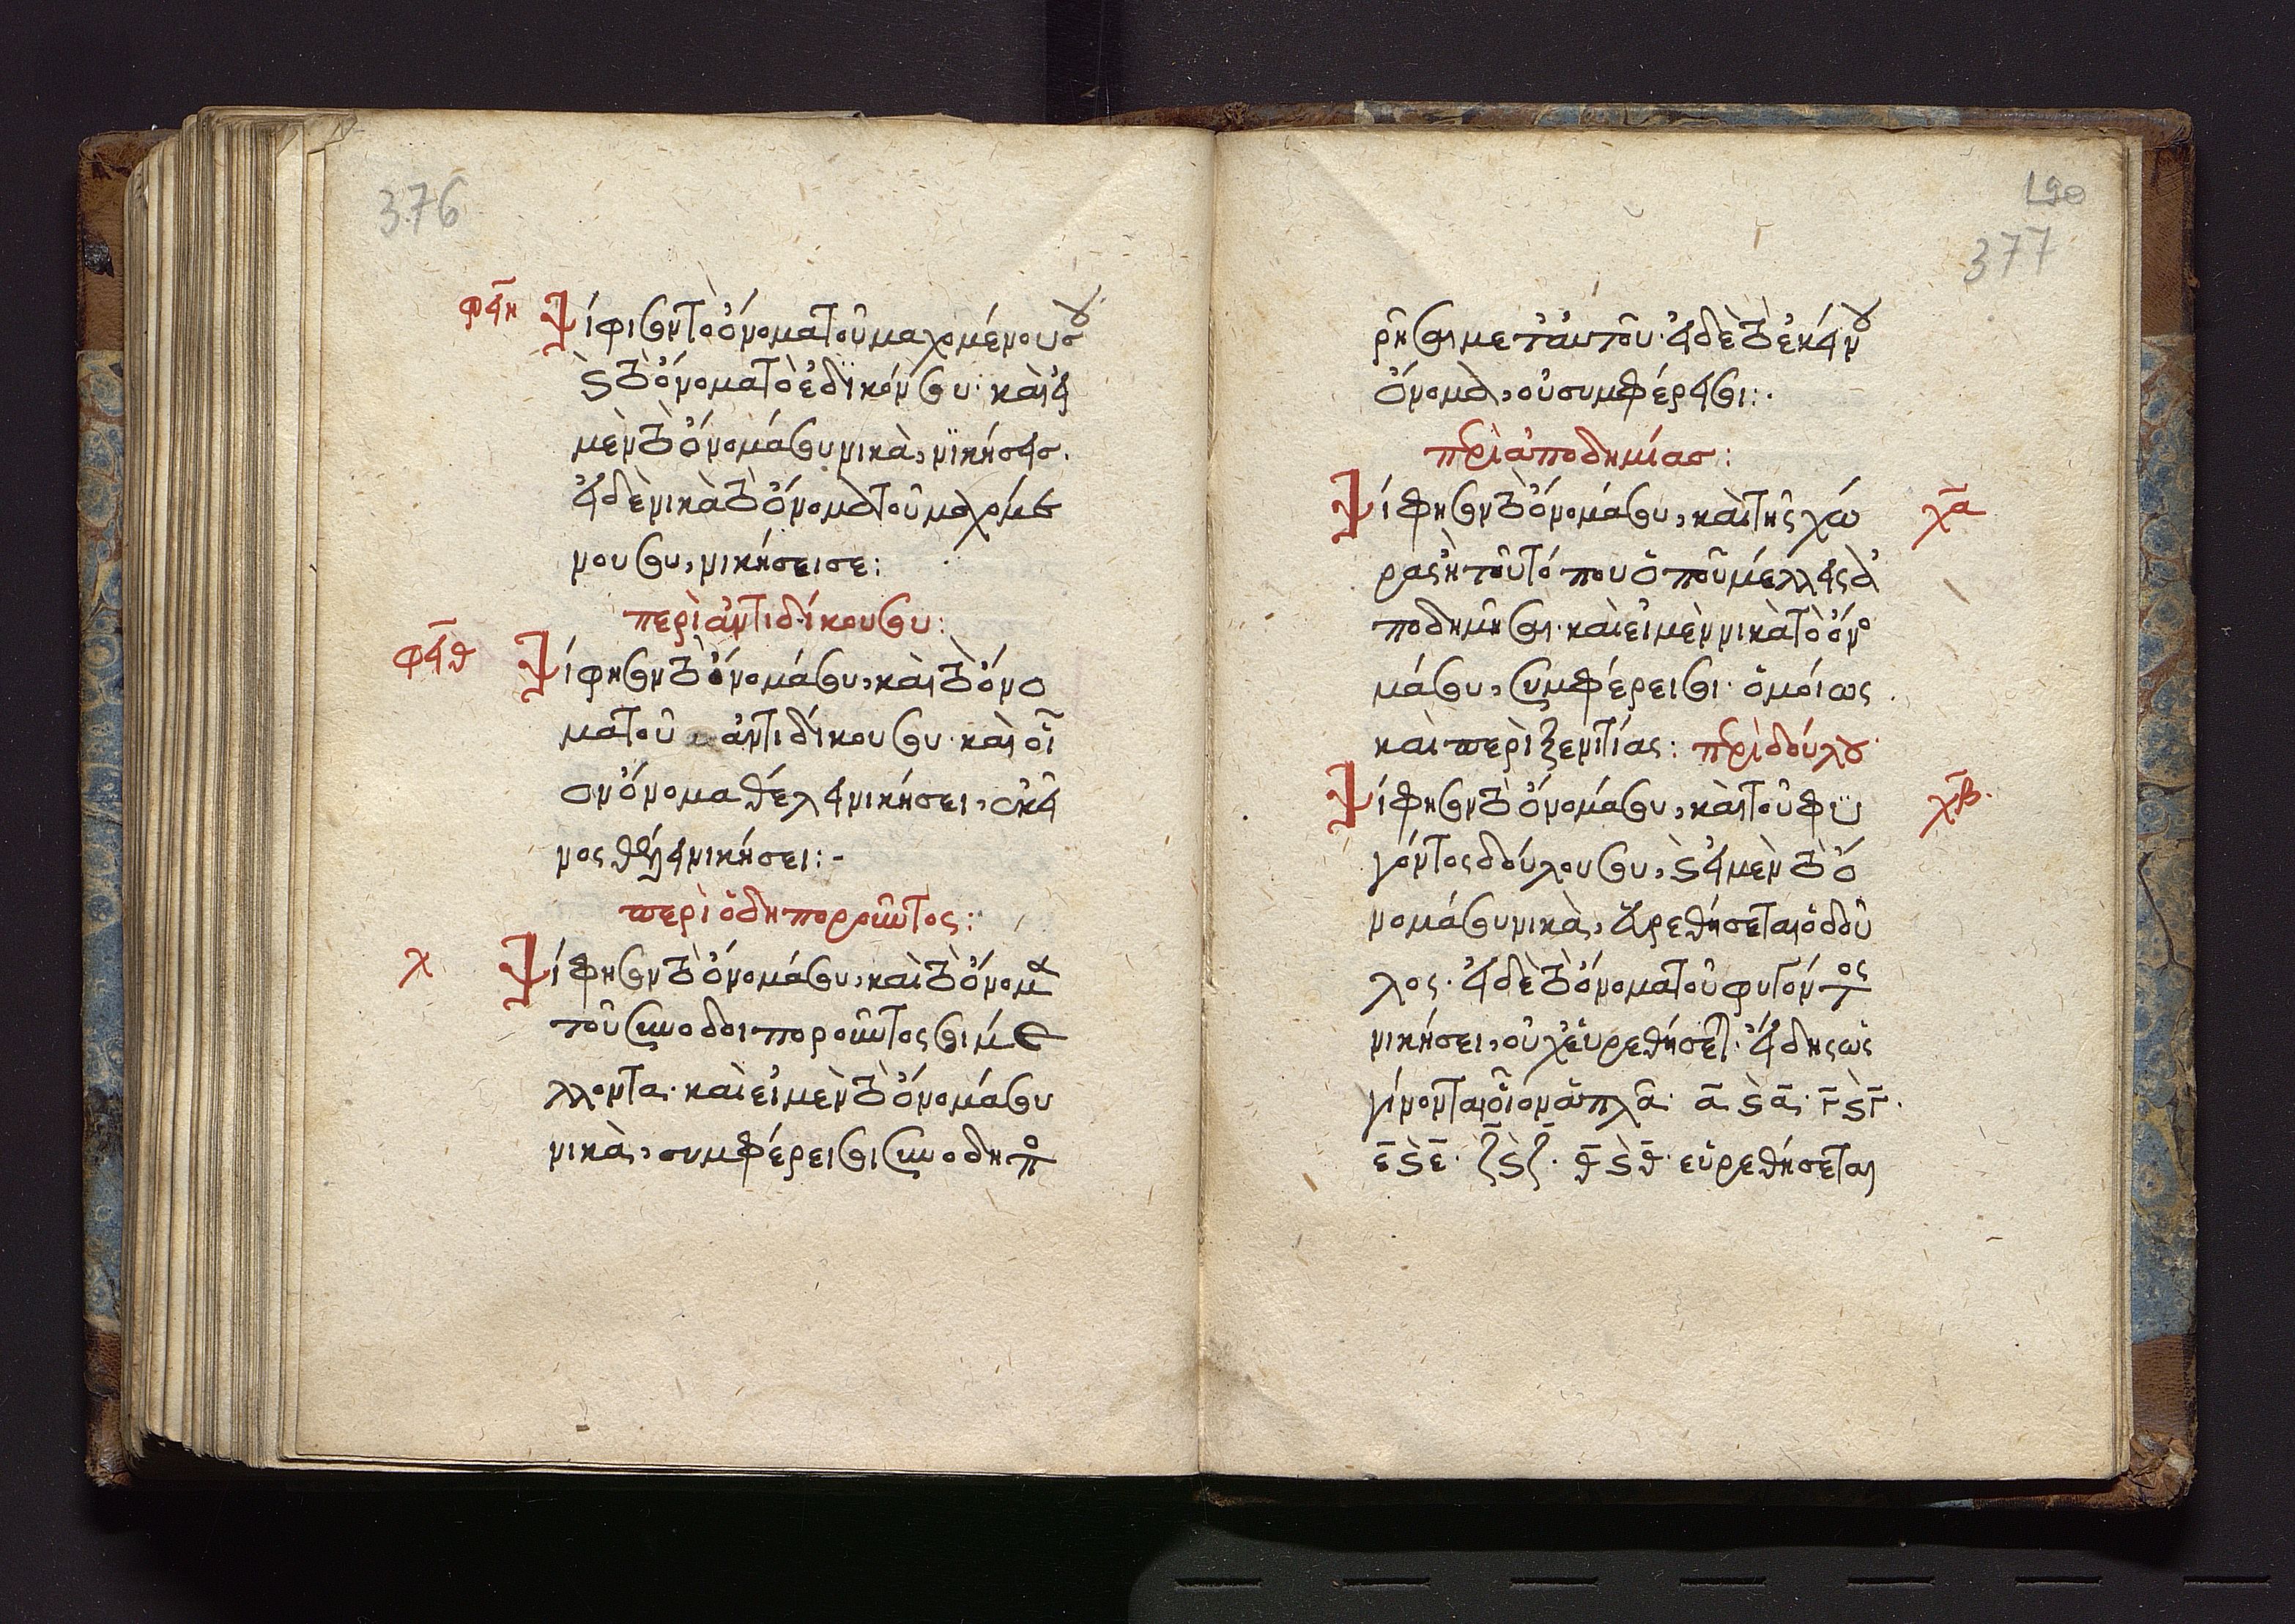 376
φϟη Ψίφισον τὸ ὄνομα τοῦ μαχομένου σου
καὶ τὸ ὄνομα τὸ ἐδϊκόν σου· καὶ εἰ
μὲν τὸ ὄνομά σου νικὰ, νϊκήσεις.
εἰ δὲ νικὰ τὸ ὄνομα τοῦ μαχομέ
νου σου, νικήσει σε:
περὶ ἀντιδίκου σου:
φϟθ Ψίφησον τὸ ὄνομά σου, καὶ τὸ ὄνο
μα τοῦ ἀντιδίκου σου· καὶ οἷ
ον ὄνομα θέλει νικήσει, ἐκεῖ
νος θέλει νικήσει:-
περὶ ὁδηποροῦντος:
χ Ψίφησον τὸ ὄνομά σου, καὶ τὸ ὄνομα
τοῦ συνοδοιποροῦντος σι μέ
λλοντα· καὶ εἰ μὲν τὸ ὄνομά σου
νικὰ, συμφέρει σι συνοδηπο
190
377
ρῆσαι μετ' ἀυτοῦ· εἰ δὲ τὸ ἐκείνου
ὄνομα, οὐ συμφέρει σι:·
περὶ ἀποδημίας:
Ψίφησον τὸ ὄνομά σου, καὶ τῆς χώ χα
ρας ἢ τοῦ τόπου ὅπου μέλλεις ἀ
ποδημῆσαι· καὶ εἰ μὲν νικὰ τὸ ὄνο
μά σου, συμφέρει σι· ὁμοίως
καὶ περὶ ξενιτίας: περὶ δούλου·
Ψίφησον τὸ ὄνομά σου, καὶ τοῦ φϋ χβ·
γόντος δούλου σου, καὶ εἰ μὲν τὸ ὄ
νομά σου νικὰ, εὑρεθήσεται ὁ δοῦ
λος· εἰ δὲ τὸ ὄνομα τοῦ φυγόντος
νικήσει, οὐχ εὑρεθήσεται· εἰ δ' ἴσως
γίνονται οἷον ἁπλᾶ· α καὶ α· γ καὶ γ·
ε καὶ ε· ζ καὶ ζ· θ καὶ θ· εὑρεθήσεται